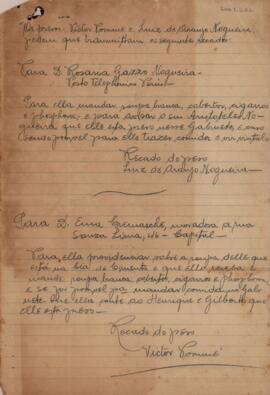 Os presos: Victor Pommé e Luiz de Araujo Nogueira,
pedem que transmittam os seguintes recados:
Para D. Rosaria Gazzo Nogueira -
Posto Telephonico
Para ella mandar roupa branca, cobertor, cigarros
e phosphoros e para avisar o seu Aristoteles No-
gueira que elle está preso nesse Gabinete e caso
possivel para elle trazer comida e
Recado do preso
Luiz de Araujo Nogueira -
Para D. Ema Cremaschi, moradora a rua
Souza Lima, - Capital -
Para ella providenciar sobre a roupa delle que
está na de e que ella receba e
mande roupa branca, coberta, cigarros e phosphoros
e se for possivel pa mandar comida no Gabi-
nete. Que ella conte ao Henrique e Gilberto que
elle está preso -
Recado do preso
Victor Pommé